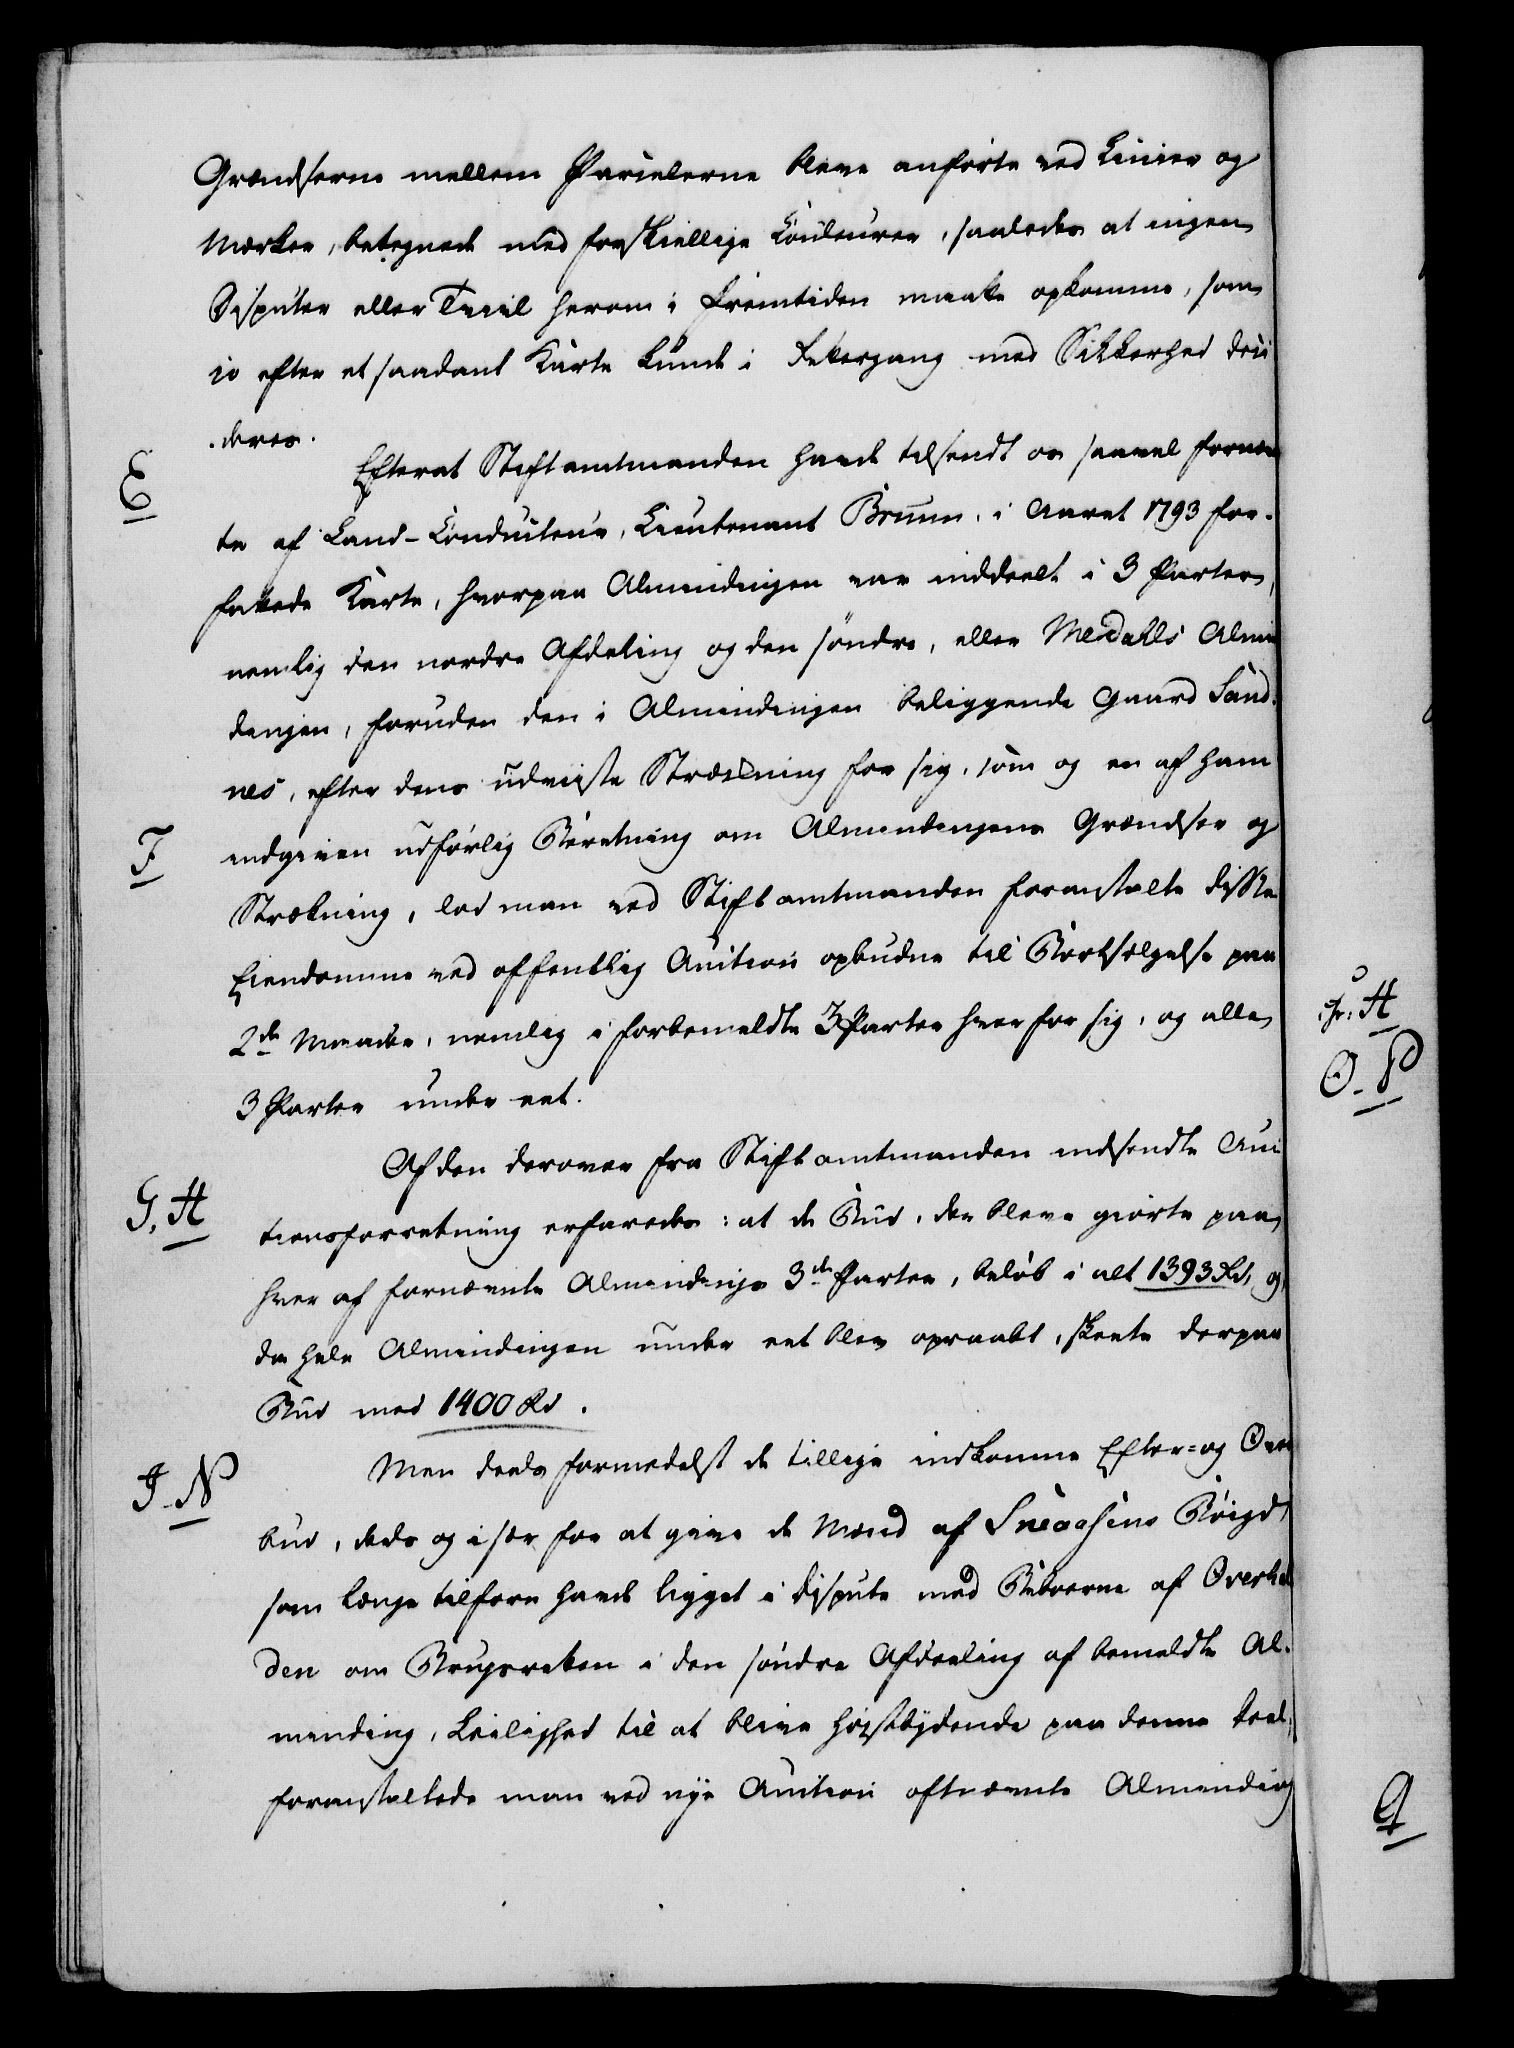 Grændserne mellem Parcelerne bleve anførte ved Linier og
Mærker, betegnede med forskiellige Couleurer, saaledes at ingen
Disputer eller Tvivl herom i Fremtiden maatte opkomme, som
jo efter et saadant Karte kunde i Rettergang med Sikkerhed deci
deres.
E
Efterat Stiftamtmanden havde tilsendt os saavel fornævn
te af Land-Conducteur, Lieutenant Bruun, i Aaret 1793 for-
fattede Karte, hvorpaa Almindingen var inddeelt i 3 Parter,
nemlig den nordre Afdeling og den søndre, eller Medahls Almin
dingen, foruden den i Almindingen beliggende Gaard Sand-
nes, efter dens udviiste Strækning for sig, som og en af ham
F
indgiven udførlig Beretning om Almindingens Grændser og
Strækning, lod man ved Stiftamtmanden foranstalte disse
Eiendomme ved offentlig Auction opbudne til Bortsælgelse paa
2de Maader, nemlig i forbemeldte 3 Parter hver for sig, og alle
3 Parter under eet.
Af den derover fra Stiftamtmanden indsendte Auc
G. H
tionsforretning erfaredes: at de Bud, der bleve giorte paa
hver af fornævnte Almindings 3de Parter, beløb i alt 1393 Rd, og
da hele Almindingen under eet blev opraabt, skeete derpaa
Bud med 1400 Rd.
I-N
Men deels formedelst de tillige indkomne Efter- og Over
bud, deels og især for at give de Mænd af Sneaasens Bøigd,
som længe tilforn havde ligget i Dispute med Beboerne af Overhal
den om Brugsretten i den søndre Afdeeling af bemeldte Al-
minding, Leilighed til at blive høistbydende paa denne Deel,
foranstaltede man ved nye Auction oftnævnte Alminding
H
O-P
Q